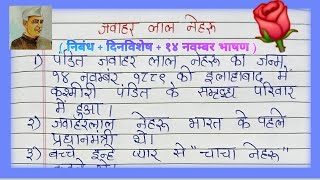 जवाहर लाल नेहरू
( निबंध + दिनविशेष + १४ नवम्बर भाषण )
१) पंडित जवाहर लाल नेहरू का जन्म
१४ नवम्बर १८८९ को इलाहाबाद में
कश्मीरी पंडित के समृद्ध परिवार
में हुआ।
२) जवाहरलाल नेहरू भारत के पहले
प्रधानमंत्री थे।
३) बच्चे इन्हे प्यार से "चाचा नेहरू"